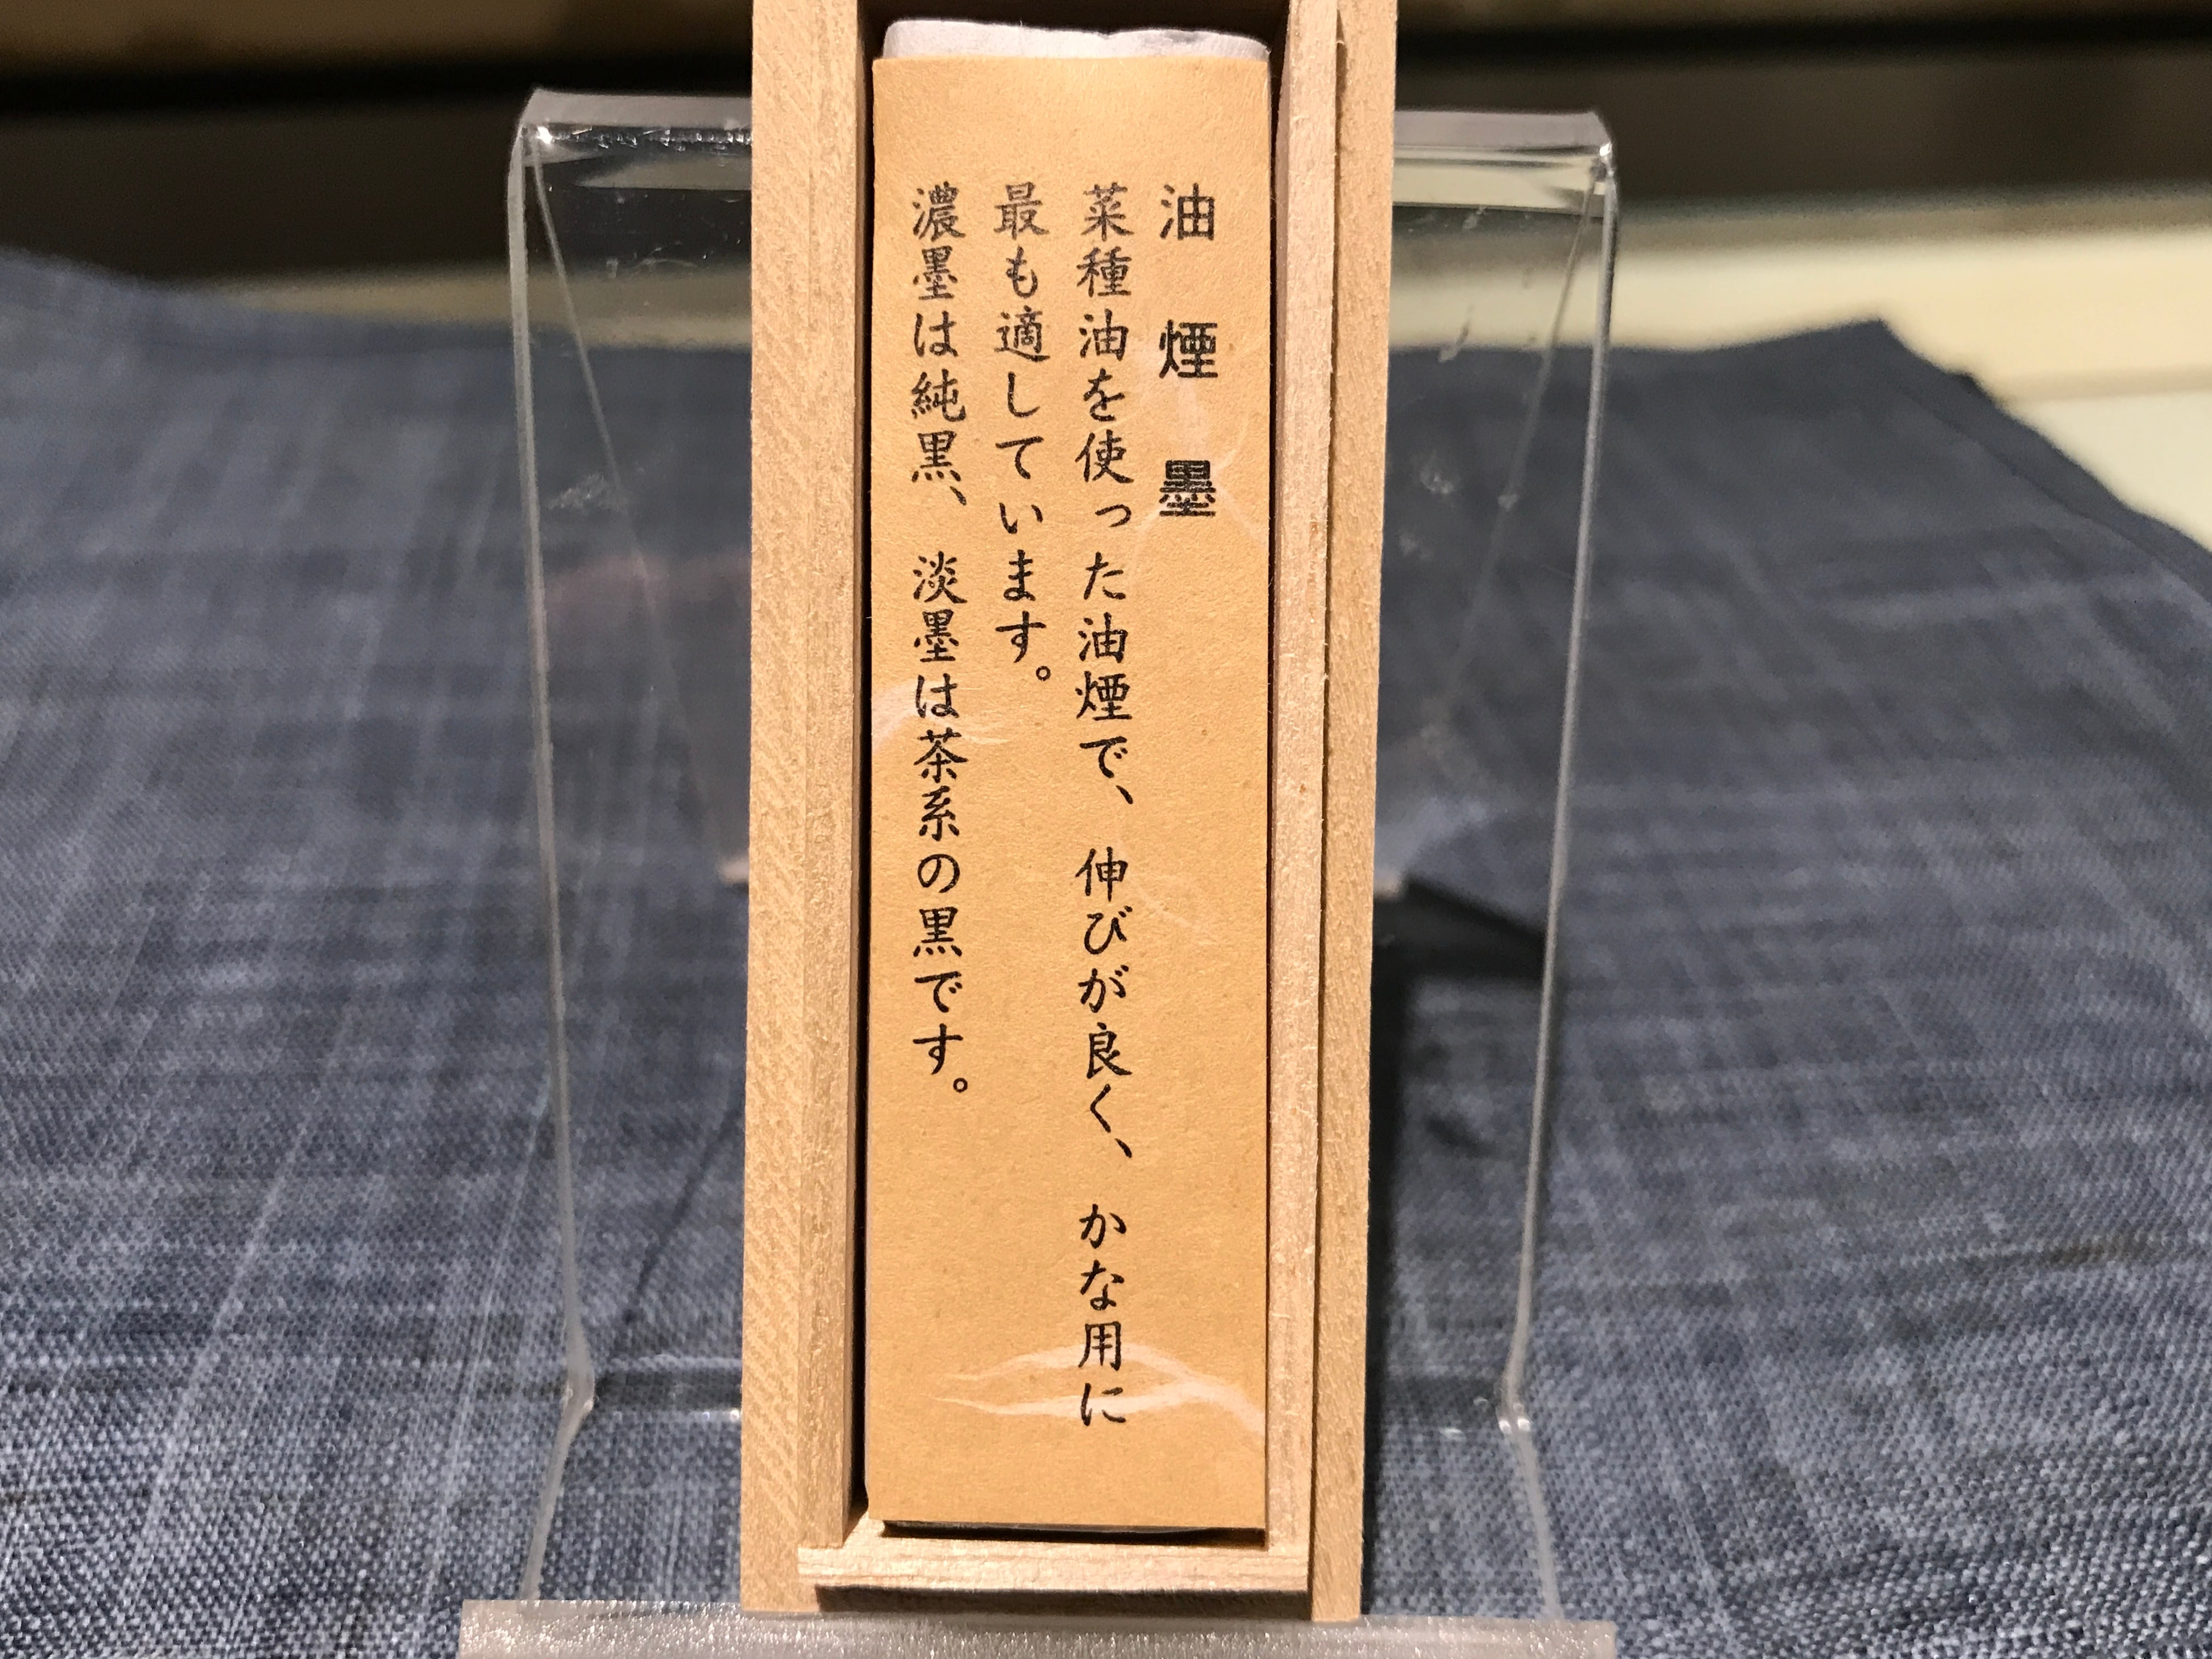 油煙墨
菜種油を使った油煙で、伸びが良く、かな用に
最も適しています。
濃墨は純黒、淡墨は茶系の黒です。